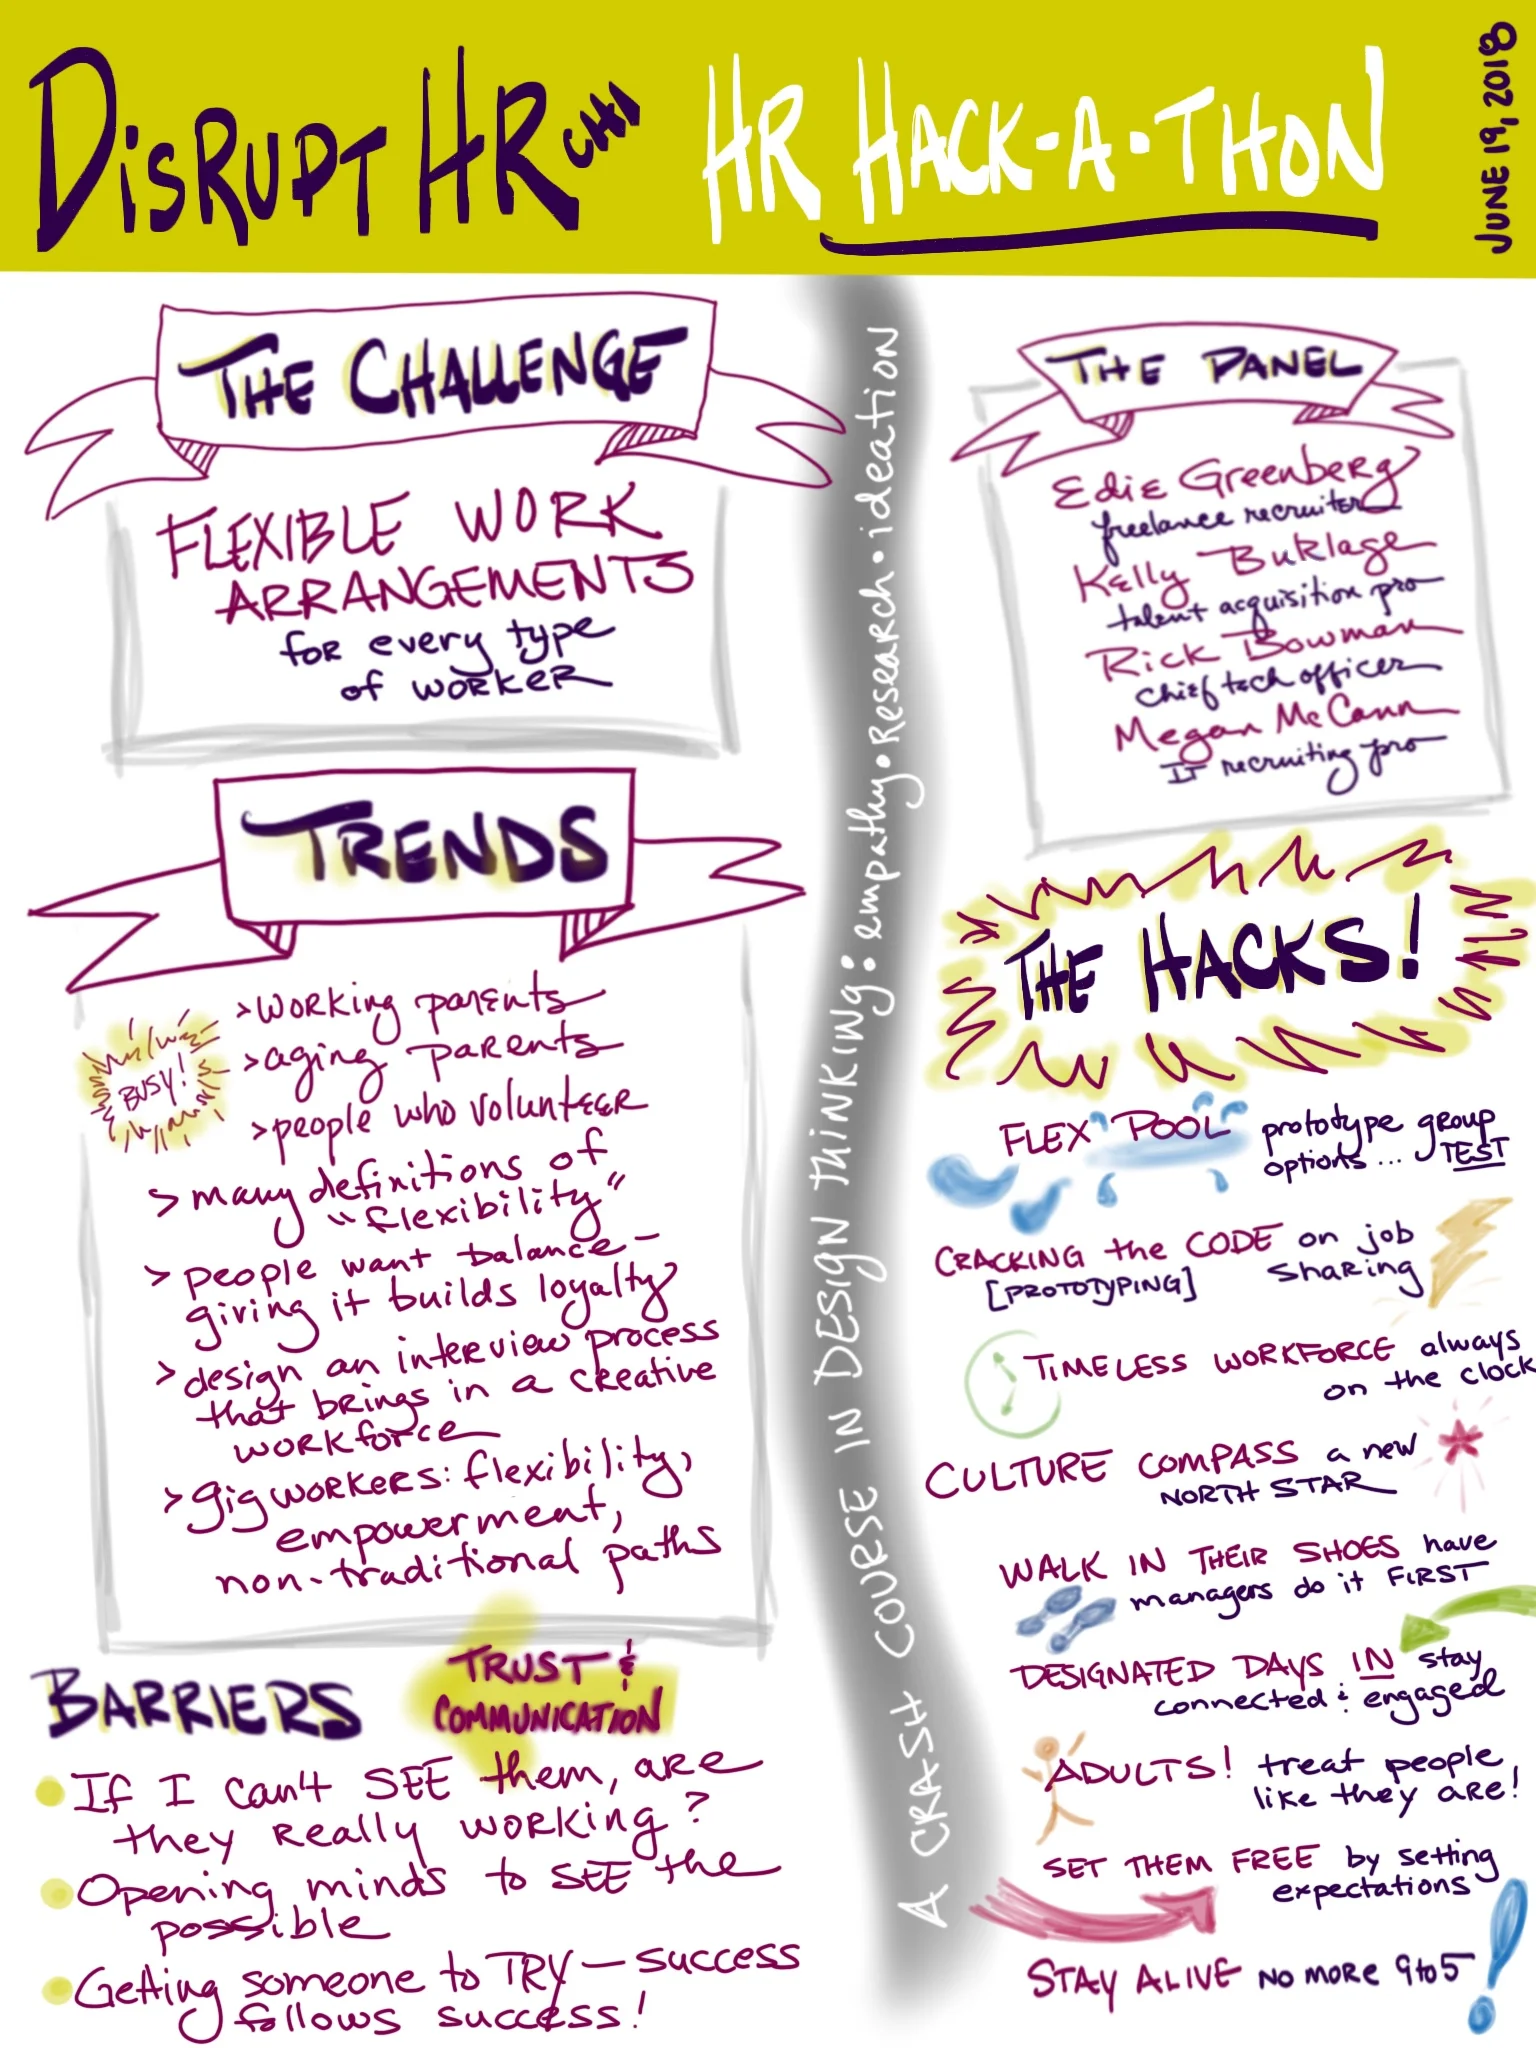 DISRUPT HR CHI
HR HACK-A-THON
JUNE 19, 2018
THE CHALLENGE
FLEXIBLE WORK
ARRANGEMENTS
for every type
of worker
TRENDS
BUSY!
> working parents
> aging parents
> people who volunteer
> many definitions of
"flexibility"
> people want balance -
giving it builds loyalty
> design an interview process
that brings in a creative
workforce
> gig workers: flexibility,
empowerment,
non-traditional paths
BARRIERS
TRUST &
COMMUNICATION
• If I can't SEE them, are
they really working?
• Opening minds to SEE the
possible
• Getting someone to TRY — success
follows success!
A CRASH COURSE IN DESIGN THINKING: empathy • research • ideation
THE PANEL
Edie Greenberg
freelance recruiter
Kelly Burlage
talent acquisition pro
Rick Bowman
chief tech officer
Megan McCann
IT recruiting pro
THE HACKS!
FLEX POOL prototype group
options... TEST
CRACKING the CODE on job
[PROTOTYPING] sharing
TIMELESS WORKFORCE always
on the clock
CULTURE COMPASS a new
NORTH STAR
WALK IN THEIR SHOES have
managers do it FIRST
DESIGNATED DAYS IN stay
connected & engaged
ADULTS! treat people
like they are!
SET THEM FREE by setting
expectations
STAY ALIVE NO MORE 9 to 5